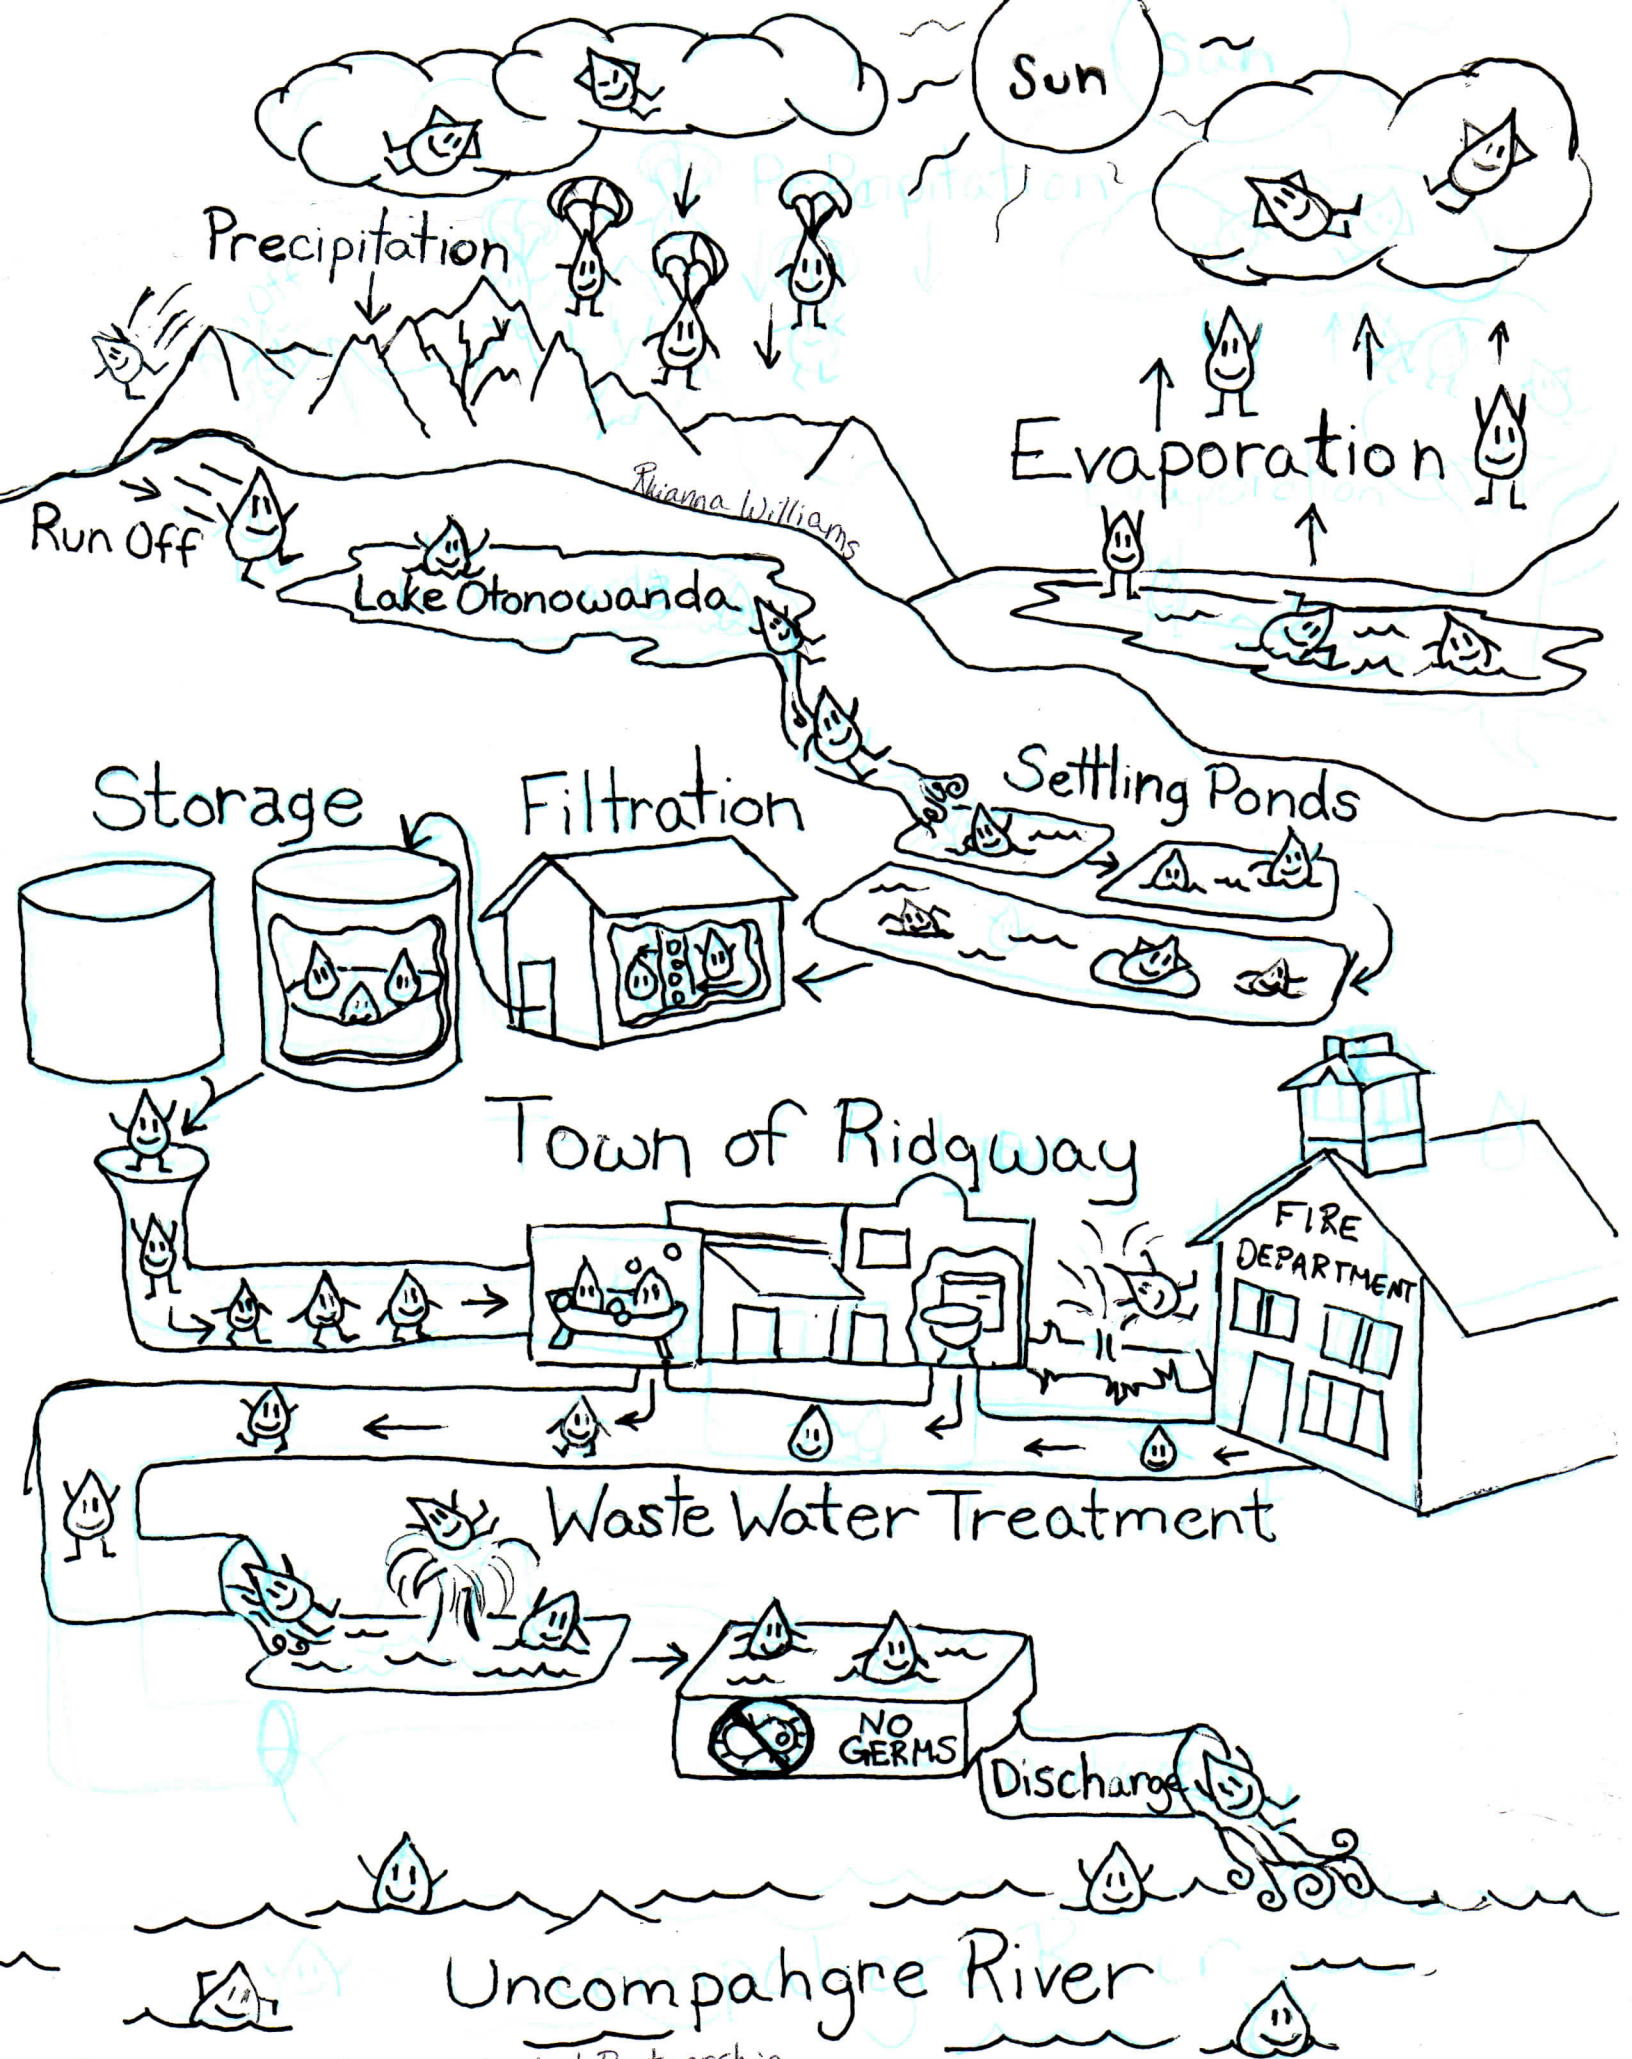 Sun
Precipitation
Evaporation
Rhianna Williams
Run Off
Lake Otonowanda
Settling Ponds
Storage
Filtration
Town of Ridgway
FIRE
DEPARTMENT
Waste Water Treatment
NO
GERMS
Discharge
Uncompahgre River